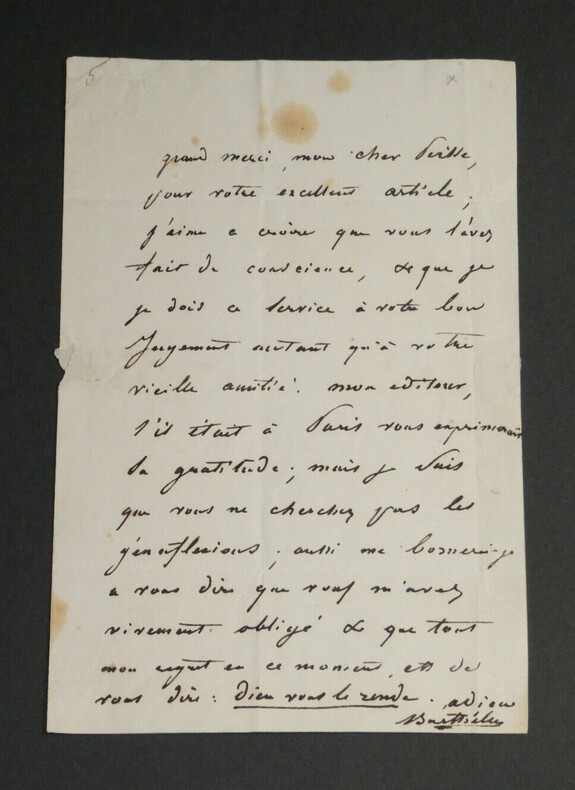 5 x
grand merci, mon cher
pour votre excellent article ;
j'aime a croire que vous l'avez
fait de conscience, & que je
je dois ce service à votre bon
jugement autant qu'à votre
vieille amitié. mon editeur,
s'il était à Paris vous exprimerait
sa gratitude ; mais je sais
que vous ne cherchez pas les
génuflexions ; aussi me bornerai-je
a vous dire que vous m'avez
vivement obligé & que tout
mon regret en ce moment est de
vous dire : dieu vous le rende. adieu